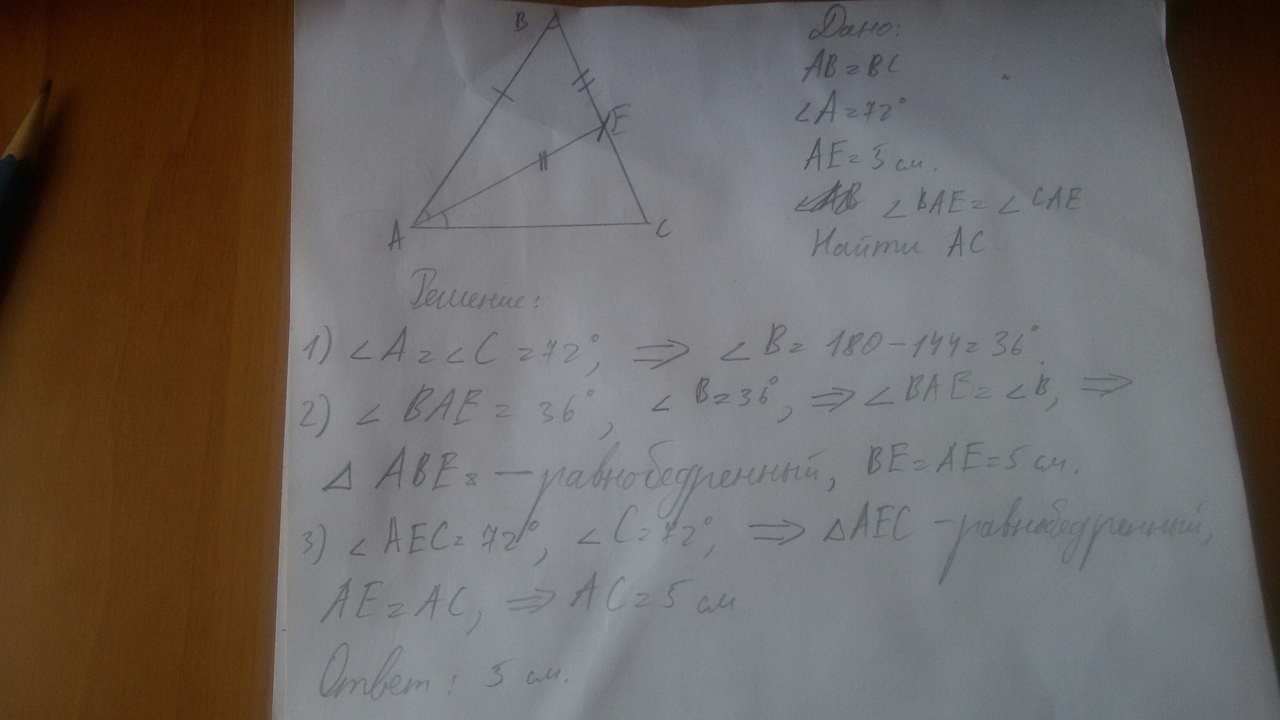 B
E
A
C
Дано:
AB=BC
∠A=72°
AE=5 см.
∠BAE=∠CAE
Найти AC
Решение:
1) ∠A=∠C=72°, ⇒ ∠B= 180-144=36°.
2) ∠BAE= 36°, ∠B=36°, ⇒ ∠BAE=∠B, ⇒
△ ABE - равнобедренный, BE=AE=5 см.
3) ∠AEC=72°, ∠C=72°, ⇒ △AEC - равнобедренный,
AE=AC, ⇒ AC=5 см
Ответ: 5 см.